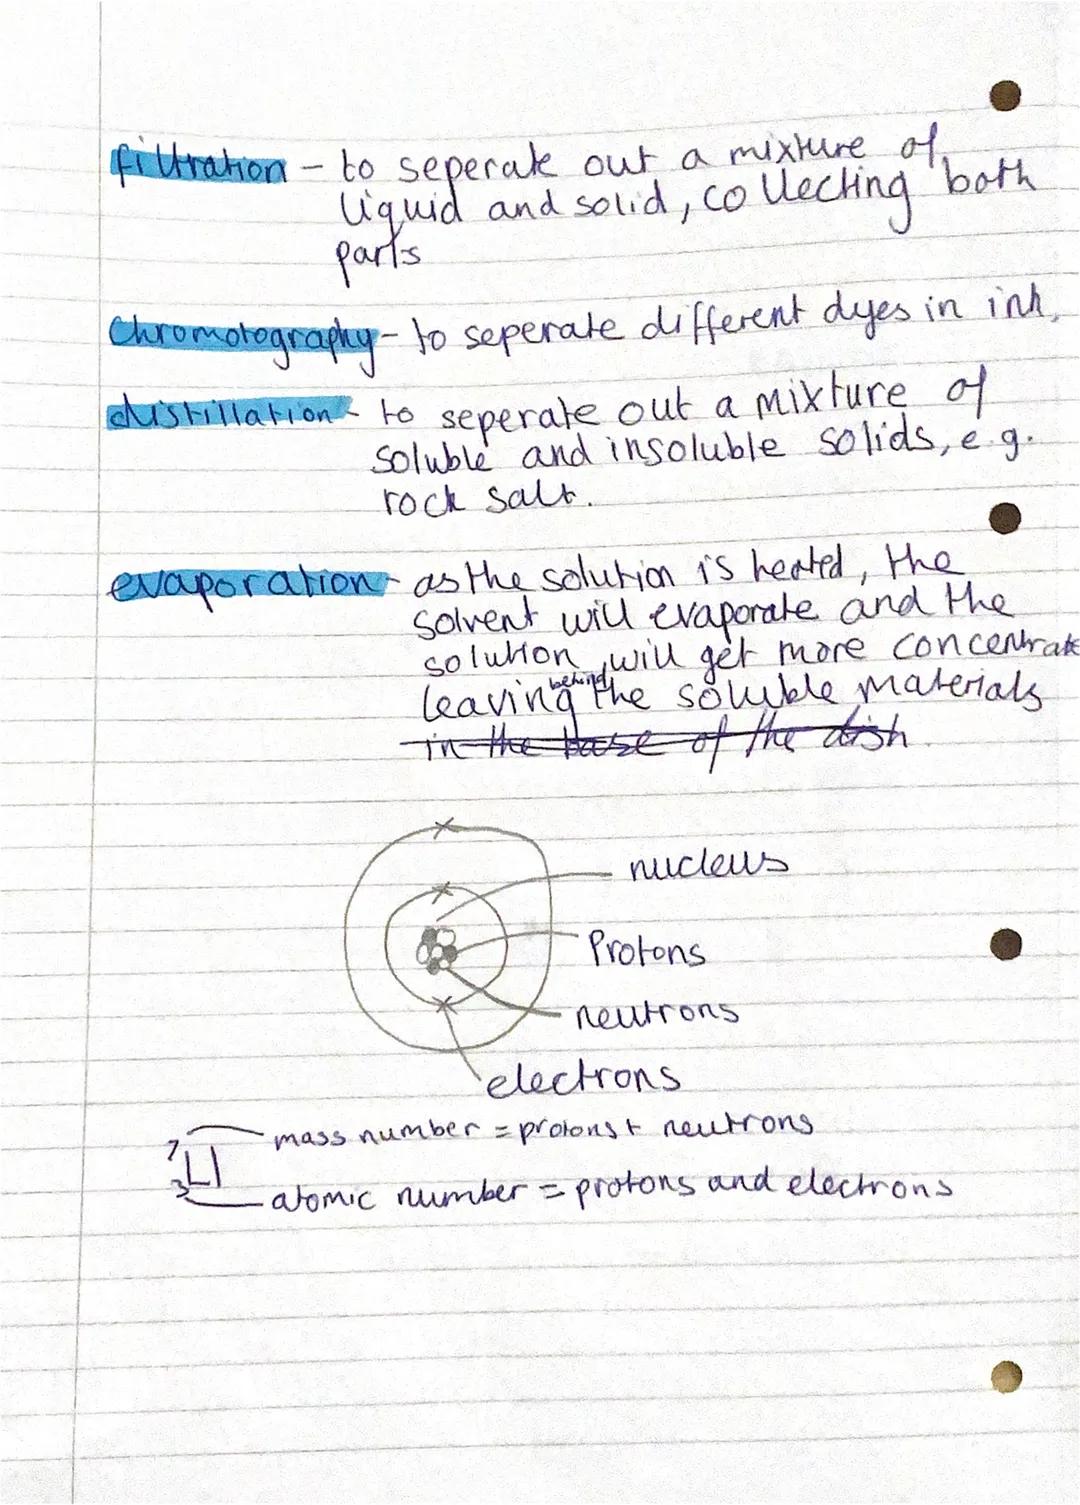 filtration - to seperate out a mixture of
liquid and solid, collecting both
parts
Chromotography - to seperate different dyes in ink.
distillation - to seperate out a mixture of
soluble and insoluble solids, e.g.
rock salt.
evaporation - as the solution is heated, the
solvent will evaporate and the
solution will get more concentrate
leaving behind the soluble materials
in the base of the dish.
nucleus
Protons
neutrons
electrons
7 mass number = protons + neutrons
Li
3 atomic number = protons and electrons